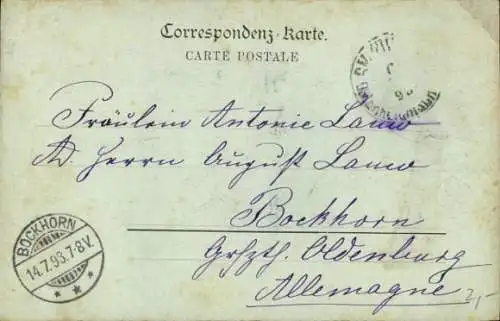 Correspondenz-Karte.
CARTE POSTALE
Fräulein Antonie Lauw
Ad. Herrn August Lauw
Bockhorn
Grhzth. Oldenburg
Allemagne
BOCKHORN
14.7.93.7-8V.
* * *
2,-